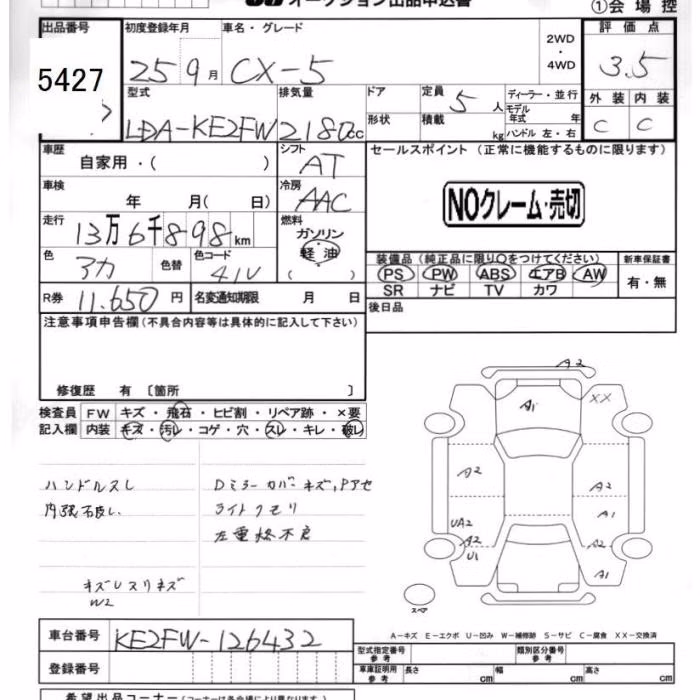 オークション出品申込書
①会場控
出品番号 初度登録年月 車名・グレード 評価点
5427 25 9月 CX-5 2WD・4WD 3.5
型式 排気量 ドア 定員 ディーラー・並行 外装 内装
LDA-KE2FW 2180cc 5人 モデル年式 年 C C
形状 積載 kg ハンドル 左・右
車歴 シフト セールスポイント (正常に機能するものに限ります)
自家用・( ) AT
車検 冷房
年 月( 日) AAC
NOクレーム・売切
走行 燃料
13万6千898km ガソリン
軽油
( )
色 色替 色コード
アカ 41V
装備品 (純正品に限り○をつけてください) 新車保証書
PS PW ABS エアB AW 有・無
SR ナビ TV カワ
R券 11,650円 名変通知期限 月 日
後日品
注意事項申告欄 (不具合内容等は具体的に記入して下さい)
修復歴 有 〔箇所 〕
検査員 FW キズ・飛石・ヒビ割・リペア跡・×要
記入欄 内装 キズ・汚レ・コゲ・穴・スレ・キレ・破レ
ハンドルスレ
Dミラーカバーキズ,Pアセ
ライトクモリ
キズレスリキズ
W2
A2
A1
XX
A2
A2
A1
UA2
A2
U1
A2
A1
スペア
A-キズ E-エクボ U-凹み W-補修跡 S-サビ C-腐食 XX-交換済
車台番号 KE2FW-126432
型式指定番号 参考 類別区分番号 参考
登録番号
車庫証明用 参考 長さ cm 幅 cm 高さ cm
希望出品コーナー